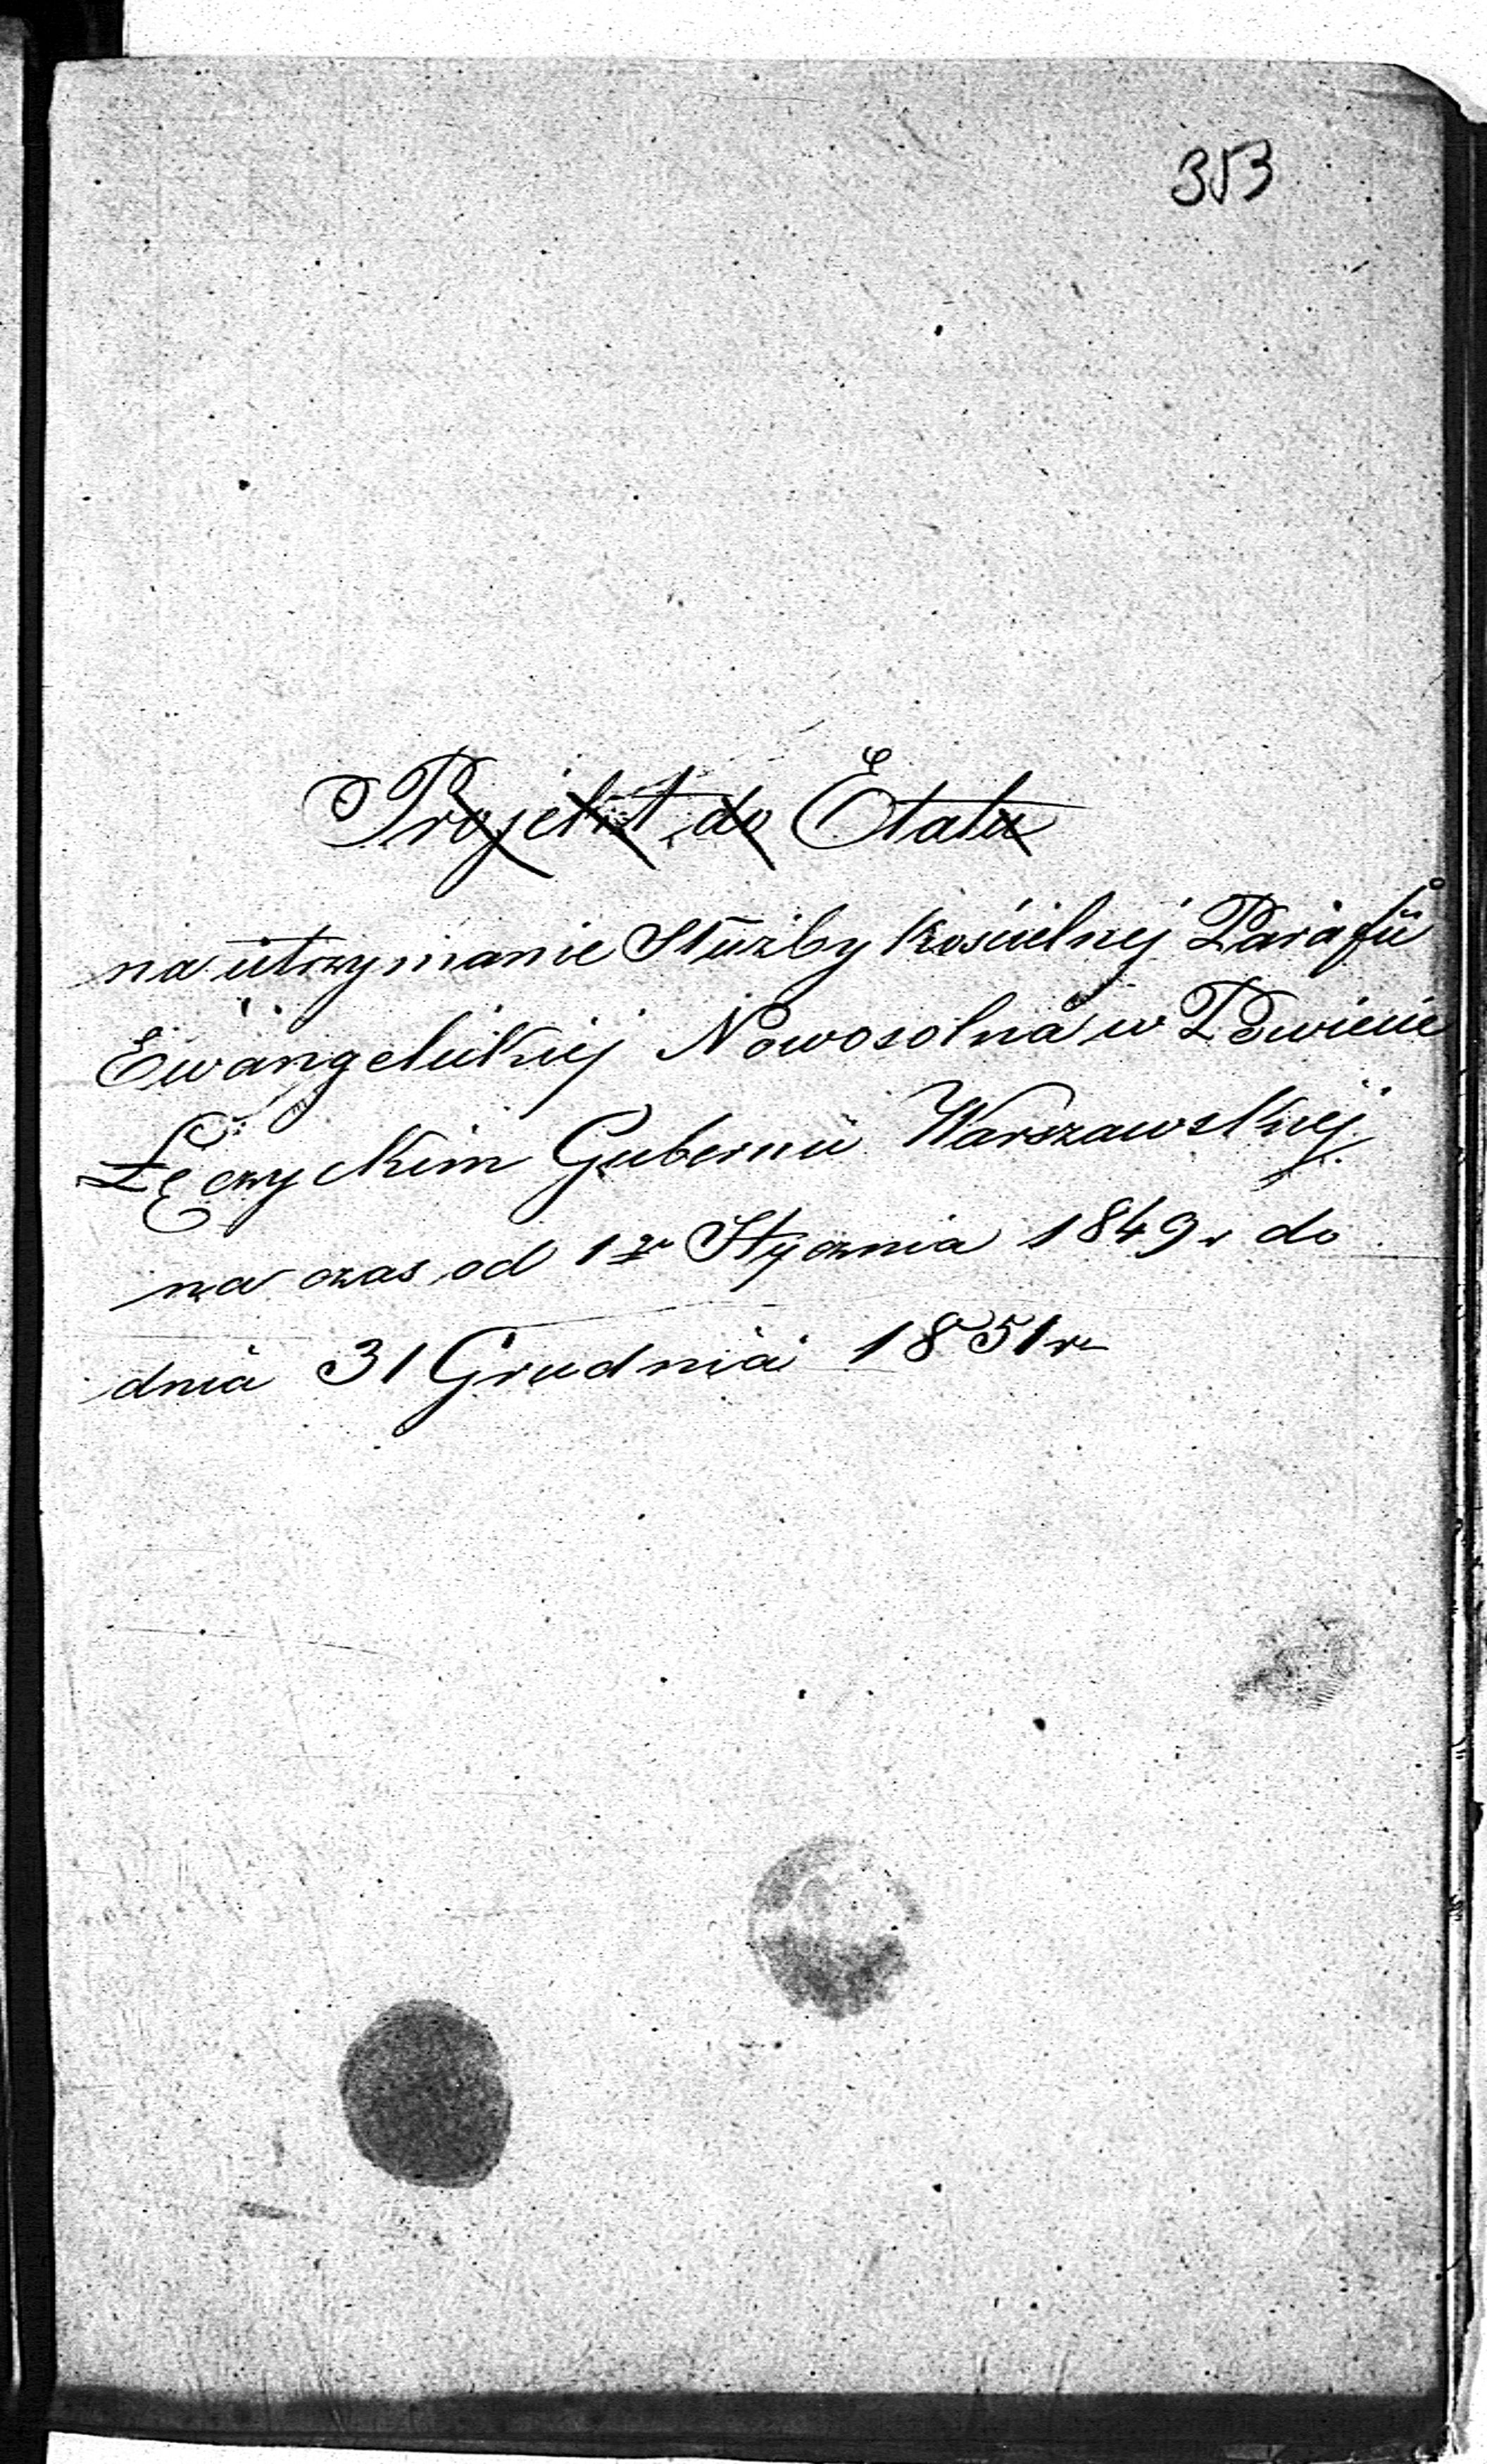 353
Projekt do Etatu
na utrzymanie Służby Kościelnej Parafii
Ewangelickiej Nowosolna w Powiecie
Łęczyckim Gubernii Warszawskiej
na czas od 1go Stycznia 1849 r do
dnia 31 Grudnia 1851 r